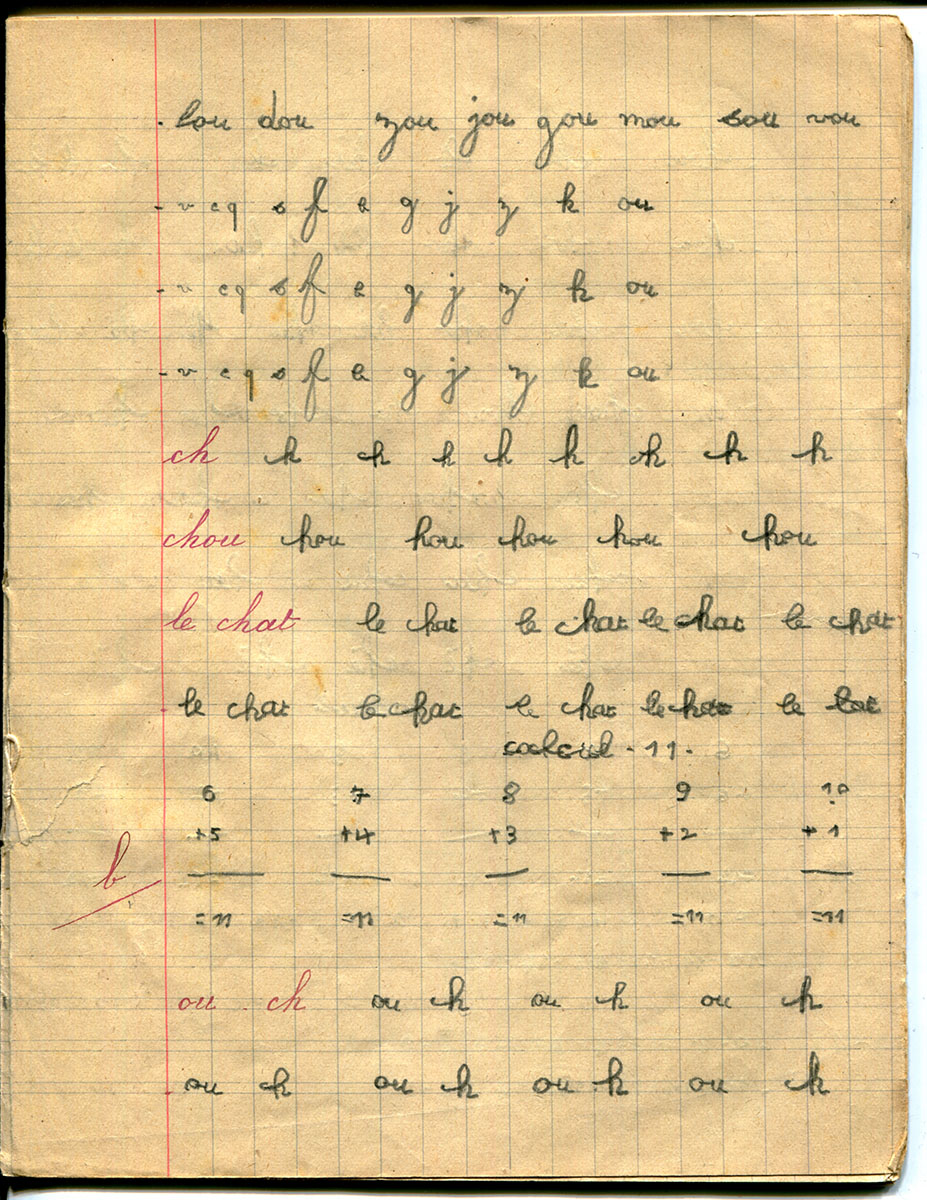 . lou dou zou jou gou mou sou vou
- v c q s f e g j z k ou
- v c q s f e g j z k ou
- v c q s f e g j z k ou
ch ch ch ch ch ch ch ch ch
chou chou chou chou chou chou
le chat le chat le chat le chat le chat
le chat le chat le chat le chat le
calcul. 11.
6 7 8 9 10
+5 +4 +3 +2 +1
b
=11 =11 =11 =11 =11
ou ch ou ch ou ch ou ch
ou ch ou ch ou ch ou ch